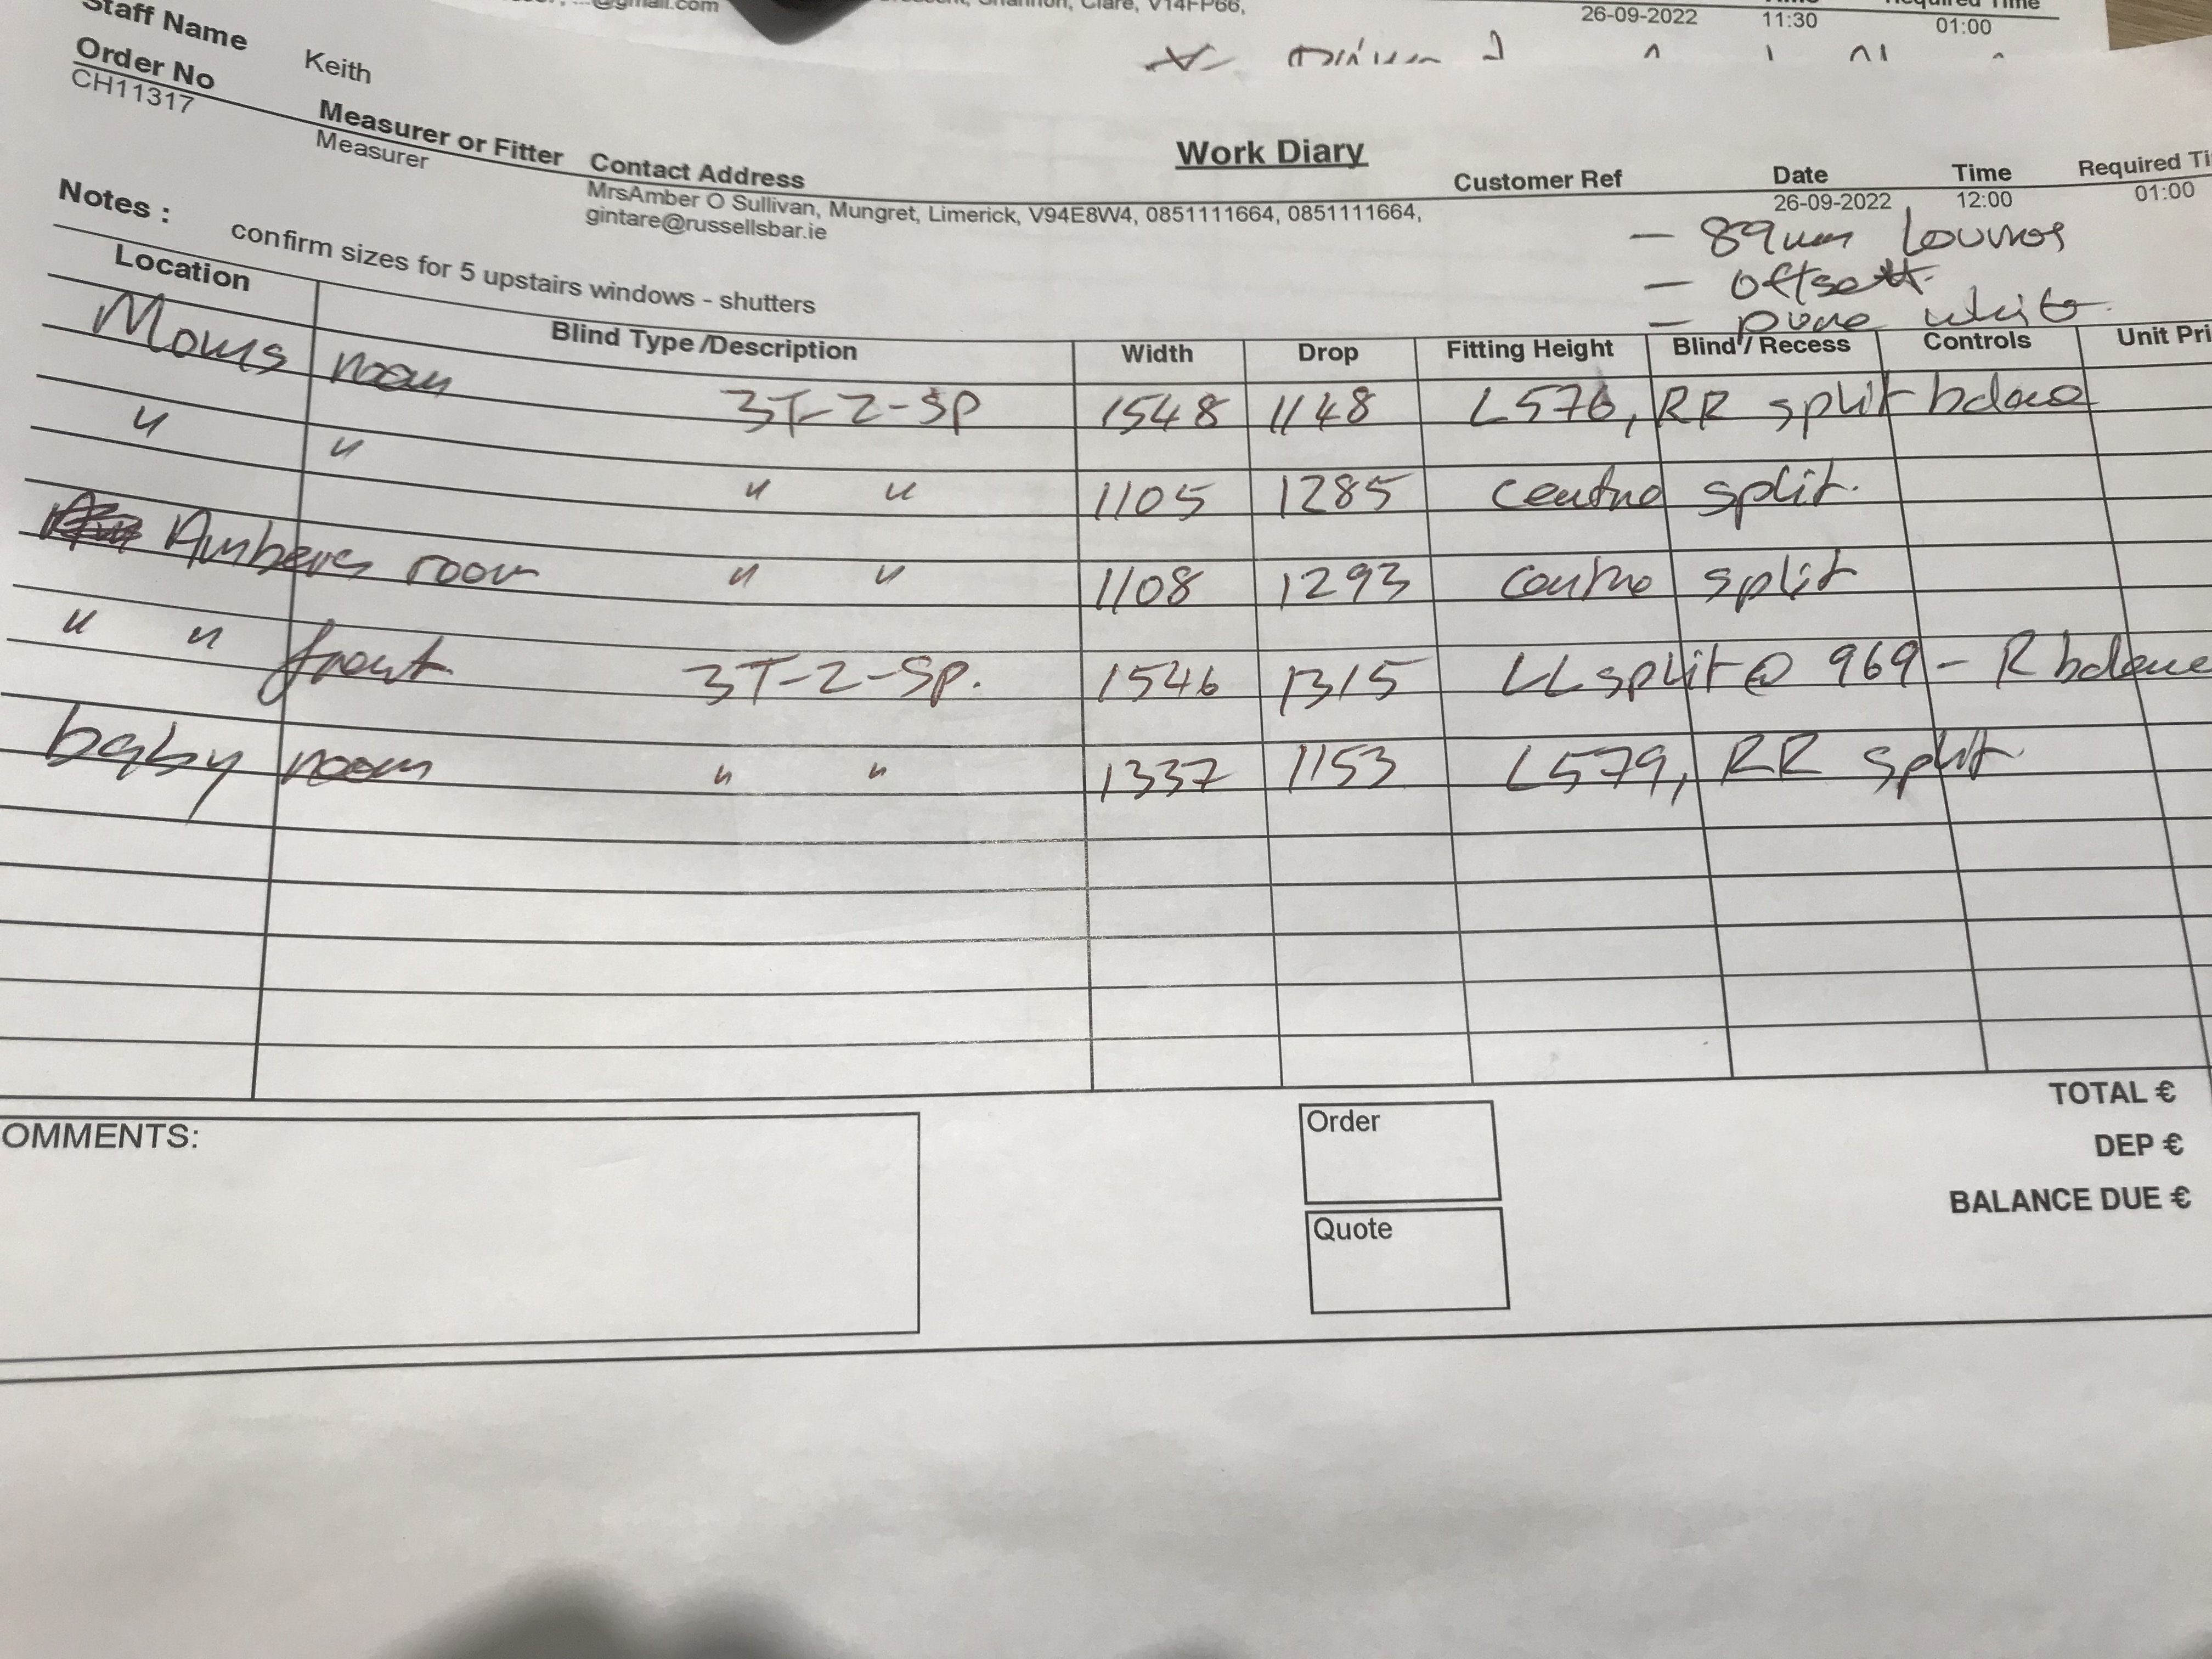 @gmail.com
Shannon, Clare, V14FP66,
26-09-2022 11:30 01:00
Staff Name Keith
Order No Measurer or Fitter Contact Address Work Diary Customer Ref Date Time Required Ti
CH11317 Measurer MrsAmber O Sullivan, Mungret, Limerick, V94E8W4, 0851111664, 0851111664, 26-09-2022 12:00 01:00
gintare@russellsbar.ie
Notes : confirm sizes for 5 upstairs windows - shutters
- 89mm louvres
- offsett
- pure white
Location Blind Type /Description Width Drop Fitting Height Blind / Recess Controls Unit Pri
Moms room 3T-2-SP 1548 1148 L576, RR split balance
" " " " 1105 1285 centre split.
Ambers room " " 1108 1293 centre split
" " front 3T-2-SP. 1546 1315 LL split @ 969 - R balance
baby room " " 1337 1153 L579, RR split
OMMENTS:
Order
Quote
TOTAL €
DEP €
BALANCE DUE €